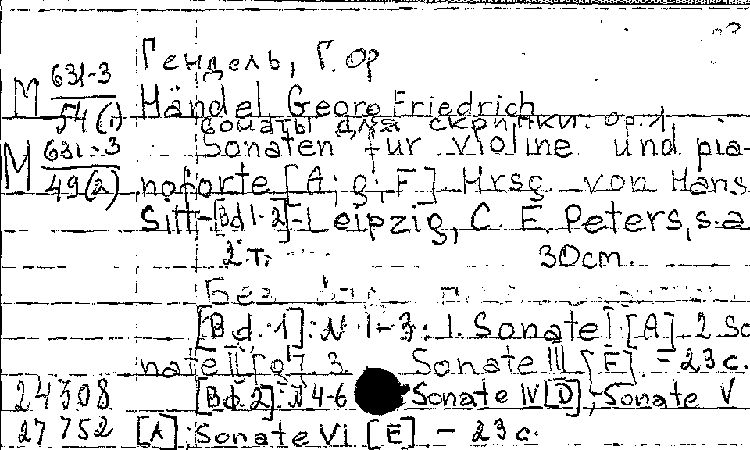 Гендель, Г. ор
M 631-3/54(1) Händel Georg Friedrich
Сонаты для скрипки. ор. 1.
M 631-3/49(2) Sonaten für Violine und pia-
noforte [A; g; F] Hrsg von Hans
Sitt-[Bd 1-2]-Leipzig, C. F. Peters, s.a
2 т. 30cm.
Без
[Bd. 1]: N 1-3: 1. Sonate I [A] 2 So
nate II [g] 3 Sonate III [F] - 23 c.
24308 [Bd. 2]: N 4-6 Sonate IV [D]; Sonate V
27752 [A]; Sonate VI [E] - 23 c.